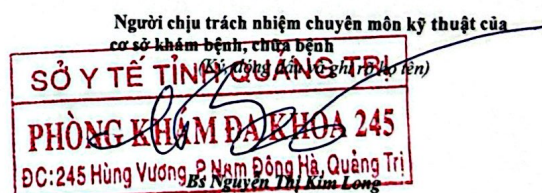 Người chịu trách nhiệm chuyên môn kỹ thuật của
cơ sở khám bệnh, chữa bệnh
(Ký, đóng dấu và ghi rõ họ tên)
SỞ Y TẾ TỈNH QUẢNG TRỊ
PHÒNG KHÁM ĐA KHOA 245
ĐC:245 Hùng Vương, P.Nam Đông Hà, Quảng Trị
Bs Nguyễn Thị Kim Long